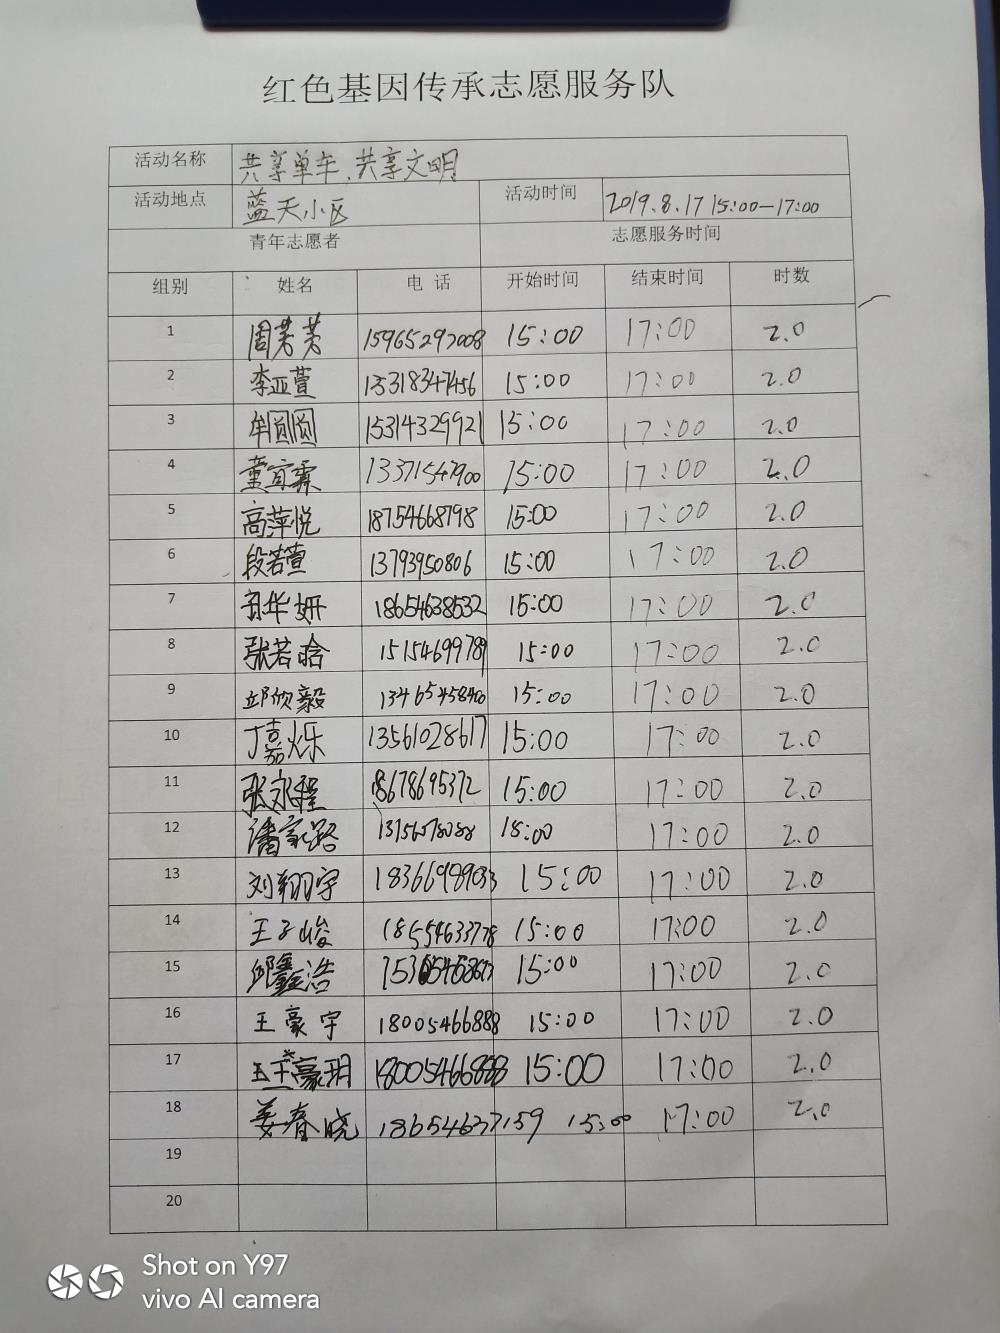 红色基因传承志愿服务队
活动名称 共享单车、共享文明
活动地点 蓝天小区 活动时间 2019.8.17 15:00—17:00
青年志愿者 志愿服务时间
组别 姓名 电 话 开始时间 结束时间 时数
1 周芳芳 15965292008 15:00 17:00 2.0
2 李亚萱 15:00 17:00 2.0
3 牟圆圆 15314329921 15:00 17:00 2.0
4 董宜霖 13371547900 15:00 17:00 2.0
5 高萍悦 18754668798 15:00 17:00 2.0
6 段若萱 13793950806 15:00 17:00 2.0
7 孙华妍 18654638532 15:00 17:00 2.0
8 张若晗 15154699789 15:00 17:00 2.0
9 邱欣毅 13465458400 15:00 17:00 2.0
10 丁嘉烁 13561028617 15:00 17:00 2.0
11 张永程 18678695372 15:00 17:00 2.0
12 潘家路 18:00 17:00 2.0
13 刘翔宇 18366989033 15:00 17:00 2.0
14 王子峻 18554633778 15:00 17:00 2.0
15 邱鑫浩 15:00 17:00 2.0
16 王豪宇 18005466888 15:00 17:00 2.0
17 王豪玥 18005466888 15:00 17:00 2.0
18 姜春晓 18654637159 15:00 17:00 2.0
19
20
Shot on Y97
vivo AI camera